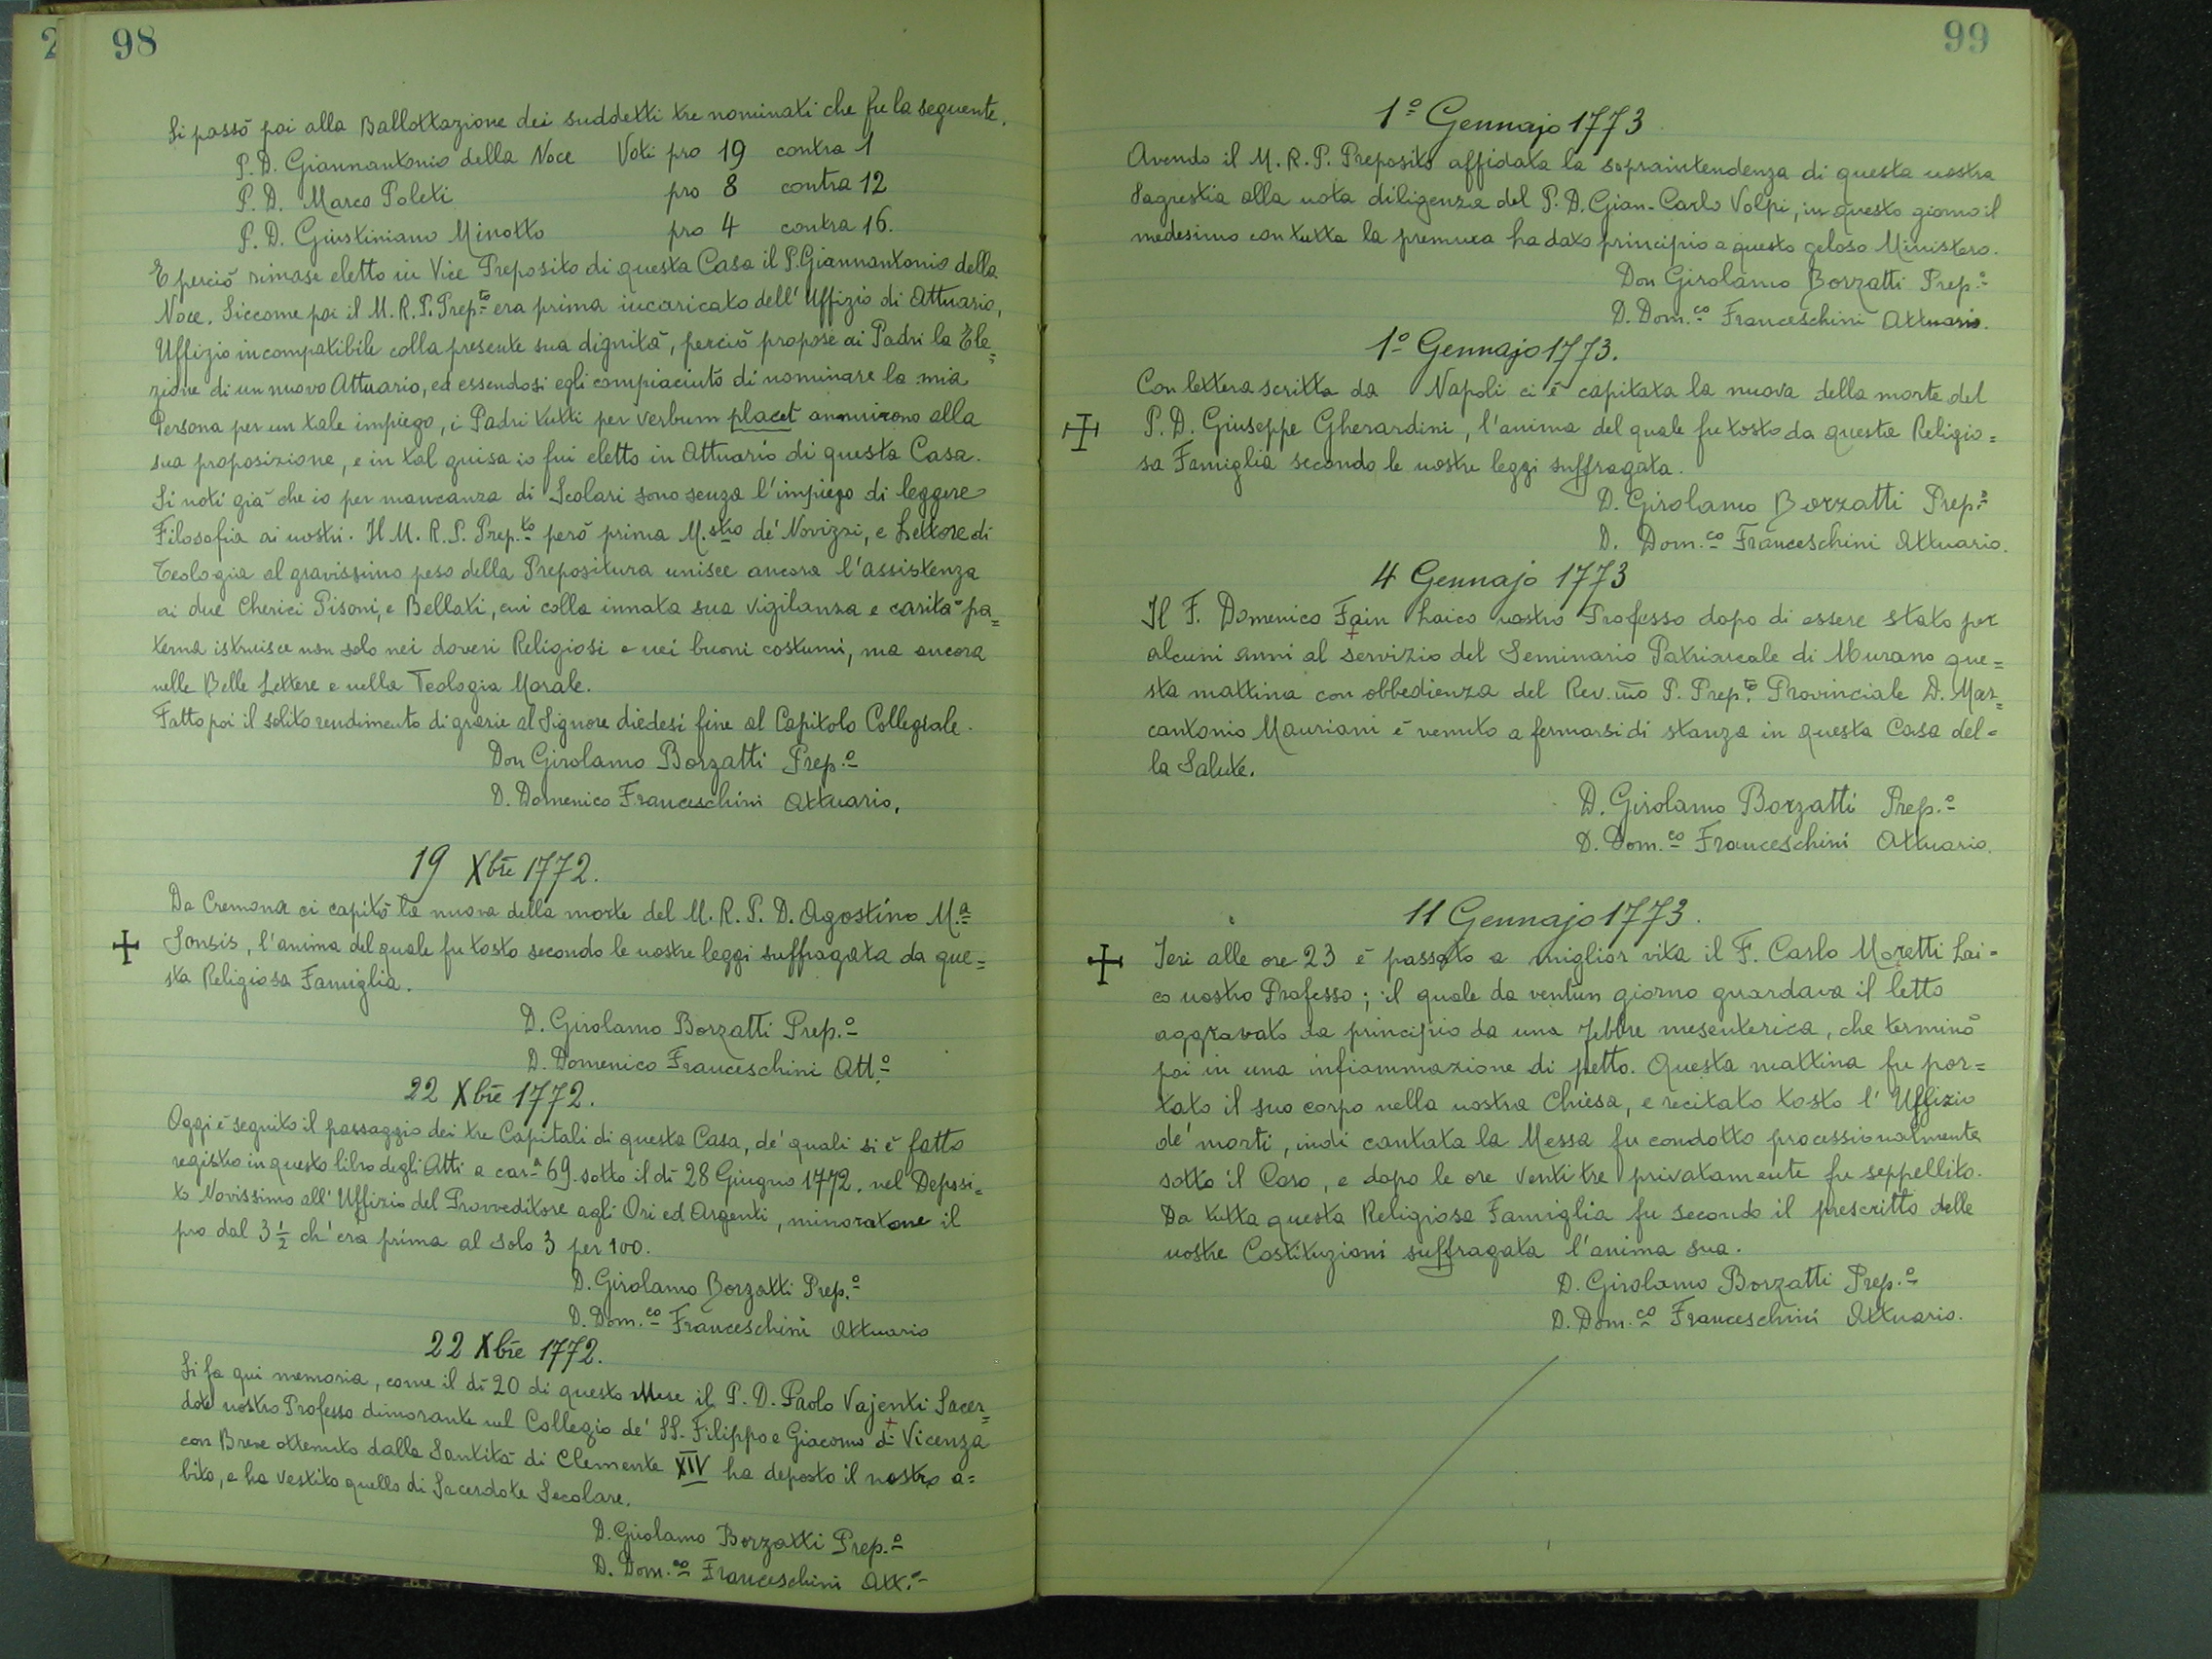 98
Si passò poi alla Ballottazione dei suddetti tre nominati che fu la seguente.
P. D. Giannantonio della Noce Voti pro 19 contra 1
P. D. Marco Poleti pro 8 contra 12
P. D. Giustiniano Minotto pro 4 contra 16.
E perciò rimase eletto in Vice Preposito di questa Casa il P. Giannantonio della
Noce. Siccome poi il M. R. P. Prep.to era prima incaricato dell' Uffizio di Attuario,
Uffizio incompatibile colla presente sua dignità, perciò propose ai Padri la Ele=
zione di un nuovo Attuario, ed essendosi egli compiaciuto di nominare la mia
Persona per un tale impiego, i Padri tutti per verbum placet annuirono alla
sua proposizione, e in tal guisa io fui eletto in Attuario di questa Casa.
Si noti già che io per mancanza di Scolari sono senza l'impiego di leggere
Filosofia ai nostri. Il M. R. P. Prep.to però prima M.stro de' Novizzi, e Lettore di
Teologia al gravissimo peso della Prepositura unisce ancora l'assistenza
ai due Cherici Pisoni, e Bellati, cui colla innata sua vigilanza e carità pa=
terna istruisce non solo nei doveri Religiosi e nei buoni costumi, ma ancora
nelle Belle Lettere e nella Teologia Morale.
Fatto poi il solito rendimento di grazie al Signore diedesi fine al Capitolo Collegiale.
Don Girolamo Borzatti Prep.o
D. Domenico Franceschini Attuario.
19 Xbre 1772.
Da Cremona ci capitò la nuova della morte del M. R. P. D. Agostino M.a
Sonsis, l'anima del quale fu tosto secondo le nostre leggi suffragata da que=
sta Religiosa Famiglia.
D. Girolamo Borzatti Prep.o
D. Domenico Franceschini Att.o
22 Xbre 1772.
Oggi è seguito il passaggio dei tre Capitali di questa Casa, de' quali si è fatto
registro in questo libro degli Atti a car.a 69. sotto il dì 28 Giugno 1772. nel Deposi=
to Novissimo all' Uffizio del Provveditore agli Ori ed Argenti, minoratone il
pro dal 3 1/2 ch' era prima al solo 3 per 100.
D. Girolamo Borzatti Prep.o
D. Dom.co Franceschini Attuario
22 Xbre 1772.
Si fa qui memoria, come il dì 20 di questo Mese il P. D. Paolo Vajenti Sacer=
dote nostro Professo dimorante nel Collegio de' SS. Filippo e Giacomo di Vicenza
con Breve ottenuto dalla Santità di Clemente XIV ha deposto il nostro a=
bito, e ha vestito quello di Sacerdote Secolare.
D. Girolamo Borzatti Prep.o
D. Dom.co Franceschini Att.o
99
1º Gennajo 1773
Avendo il M. R. P. Preposito affidata la sopraintendenza di questa nostra
Sagrestia alla nota diligenza del P. D. Gian-Carlo Volpi, in questo giorno il
medesimo con tutta la premura ha dato principio a questo geloso Ministero.
Don Girolamo Borzatti Prep.o
D. Dom.co Franceschini Attuario.
1º Gennajo 1773.
Con lettera scritta da Napoli ci è capitata la nuova della morte del
P. D. Giuseppe Gherardini, l'anima del quale fu tosto da questa Religio=
sa Famiglia secondo le nostre leggi suffragata.
D. Girolamo Borzatti Prep.o
D. Dom.co Franceschini Attuario.
4 Gennajo 1773
Il F. Domenico Fain Laico nostro Professo dopo di essere stato per
alcuni anni al servizio del Seminario Patriarcale di Murano que=
sta mattina con obbedienza del Rev.mo P. Prep.to Provinciale D. Mar=
cantonio Mauriani è venuto a fermarsi di stanza in questa Casa del=
la Salute.
D. Girolamo Borzatti Prep.o
D. Dom.co Franceschini Attuario.
11 Gennajo 1773.
Jeri alle ore 23 è passato a miglior vita il F. Carlo Moretti Lai=
co nostro Professo; il quale da ventun giorno guardava il letto
aggravato da principio da una febbre mesenterica, che terminò
poi in una infiammazione di petto. Questa mattina fu por=
tato il suo corpo nella nostra Chiesa, e recitato tosto l' Uffizio
de' morti, indi cantata la Messa fu condotto processionalmente
sotto il Coro, e dopo le ore ventitre privatamente fu seppellito.
Da tutta questa Religiosa Famiglia fu secondo il prescritto delle
nostre Costituzioni suffragata l'anima sua.
D. Girolamo Borzatti Prep.o
D. Dom.co Franceschini Attuario.